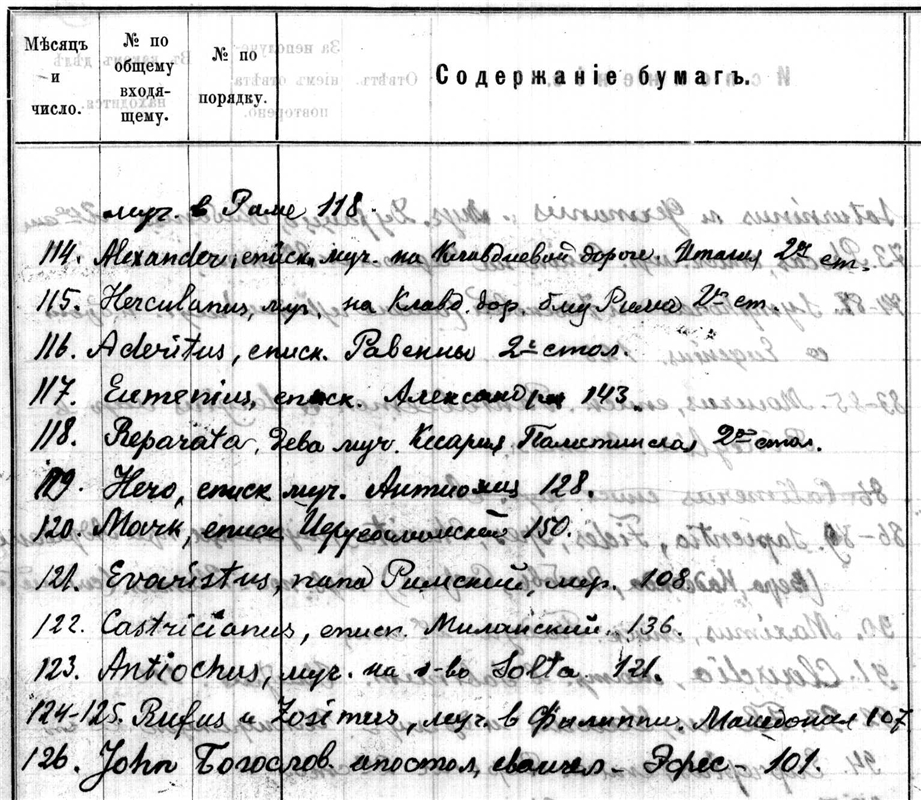 Мѣсяцъ и число.
№ по общему входящему.
№ по порядку.
Содержаніе бумагъ.
муч. в Риме 118.
114. Alexander, еписк. муч. на Клавдиевой дороге. Италия 2й ст.
115. Herculanus, муч. на Клавд. дор. близ Рима 2й ст.
116. Aderitus, еписк. Равенны 2й стол.
117. Eumenius, еписк. Александрии 143.
118. Reparata, дева муч. Кесария Палестинская 2й стол.
119. Hero, еписк муч. Антиохия 128.
120. Марк, еписк Иерусалимский 150.
121. Evaristus, папа Римский, мчр. 108.
122. Castricianus, еписк. Миланский. 136.
123. Antiochus, муч. на о-во Solta. 121.
124-125. Rufus и Zosimus, муч. в Филиппи. Македония 107
126. John Богослов апостол, евангел - Эфес - 101.